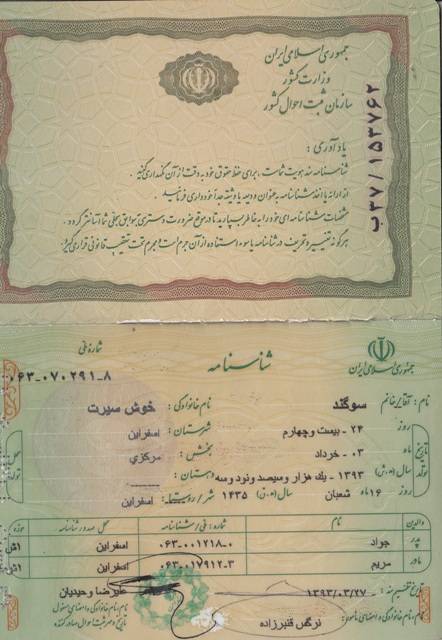 جمهوری اسلامی ایران
وزارت کشور
سازمان ثبت احوال کشور
یادآوری :
شناسنامه سند هویت شماست، برای حفظ حقوق خود به دقت از آن نگهداری کنید .
از ارائه یا اخذ شناسنامه به عنوان ودیعه یا وثیقه جداً خودداری فرمائید .
مشخصات شناسنامه ای خود را به خاطر بسپارید تا در موقع ضرورت دسترسی به سوابق سجلی شما آسانتر گردد .
هرگونه تغییر و تحریف در شناسنامه یا سوء استفاده از آن جرم است و مجرم تحت تعقیب قانونی قرار می گیرد
ب۳۷/۱۵۳۷۶۲
جمهوری اسلامی ایران
شناسنامه
شماره ملی :
۰۶۳-۰۷۰۲۹۱-۸
نام : آقا/خانم سوگند نام خانوادگی : خوش سیرت
تاریخ تولد روز ۲۴ - بیست وچهارم شهرستان : اسفراین
ماه ۰۳ - خرداد بخش : مرکزی
سال (ه.ش) ۱۳۹۳ - یك هزار وسیصد ونود وسه دهستان :
روز ۱۶ ماه شعبان سال (ه.ق) ۱۴۳۵ شهر/روستا : اسفراین
محل تولد
والدین نام شماره : ملی/شناسنامه محل صدور شناسنامه حوزه
پدر جواد ۰۶۳-۰۰۱۲۱۸-۰ اسفراین
مادر مریم ۰۶۳-۰۱۷۹۱۲-۳ اسفراین
تاریخ تنظیم سند : ۱۳۹۳/۰۳/۲۷ علیرضا وحیدیان
نام، نام خانوادگی و امضای مامور : نرگس قنبرزاده
نام، نام خانوادگی و امضای مسئول